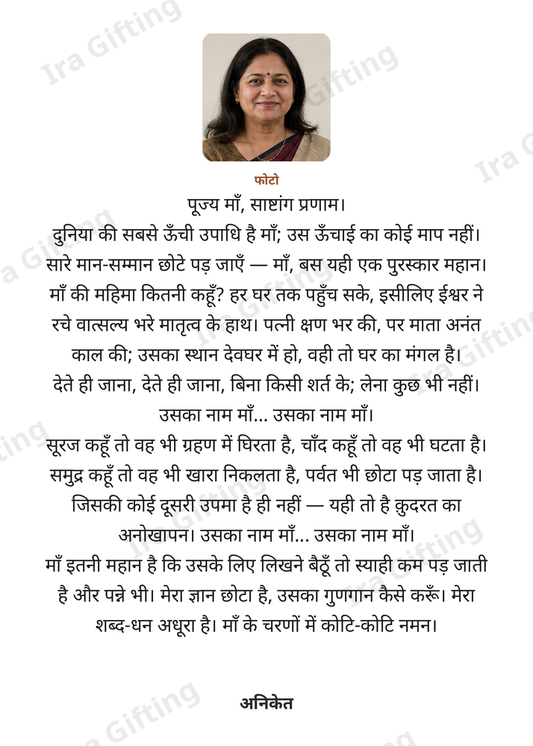 फोटो
पूज्य माँ, साष्टांग प्रणाम।
दुनिया की सबसे ऊँची उपाधि है माँ; उस ऊँचाई का कोई माप नहीं।
सारे मान-सम्मान छोटे पड़ जाएँ — माँ, बस यही एक पुरस्कार महान।
माँ की महिमा कितनी कहूँ? हर घर तक पहुँच सके, इसीलिए ईश्वर ने
रचे वात्सल्य भरे मातृत्व के हाथ। पत्नी क्षण भर की, पर माता अनंत
काल की; उसका स्थान देवघर में हो, वही तो घर का मंगल है।
देते ही जाना, देते ही जाना, बिना किसी शर्त के; लेना कुछ भी नहीं।
उसका नाम माँ... उसका नाम माँ।
सूरज कहूँ तो वह भी ग्रहण में घिरता है, चाँद कहूँ तो वह भी घटता है।
समुद्र कहूँ तो वह भी खारा निकलता है, पर्वत भी छोटा पड़ जाता है।
जिसकी कोई दूसरी उपमा है ही नहीं — यही तो है क़ुदरत का
अनोखापन। उसका नाम माँ... उसका नाम माँ।
माँ इतनी महान है कि उसके लिए लिखने बैठूँ तो स्याही कम पड़ जाती
है और पन्ने भी। मेरा ज्ञान छोटा है, उसका गुणगान कैसे करूँ। मेरा
शब्द-धन अधूरा है। माँ के चरणों में कोटि-कोटि नमन।
अनिकेत
Ira Gifting
Ira Gifting
Ira G
a Gifting
Ira Gifting
Ira Gifting
ifting
Ira Gifting
Ira Gifting
a Gifting